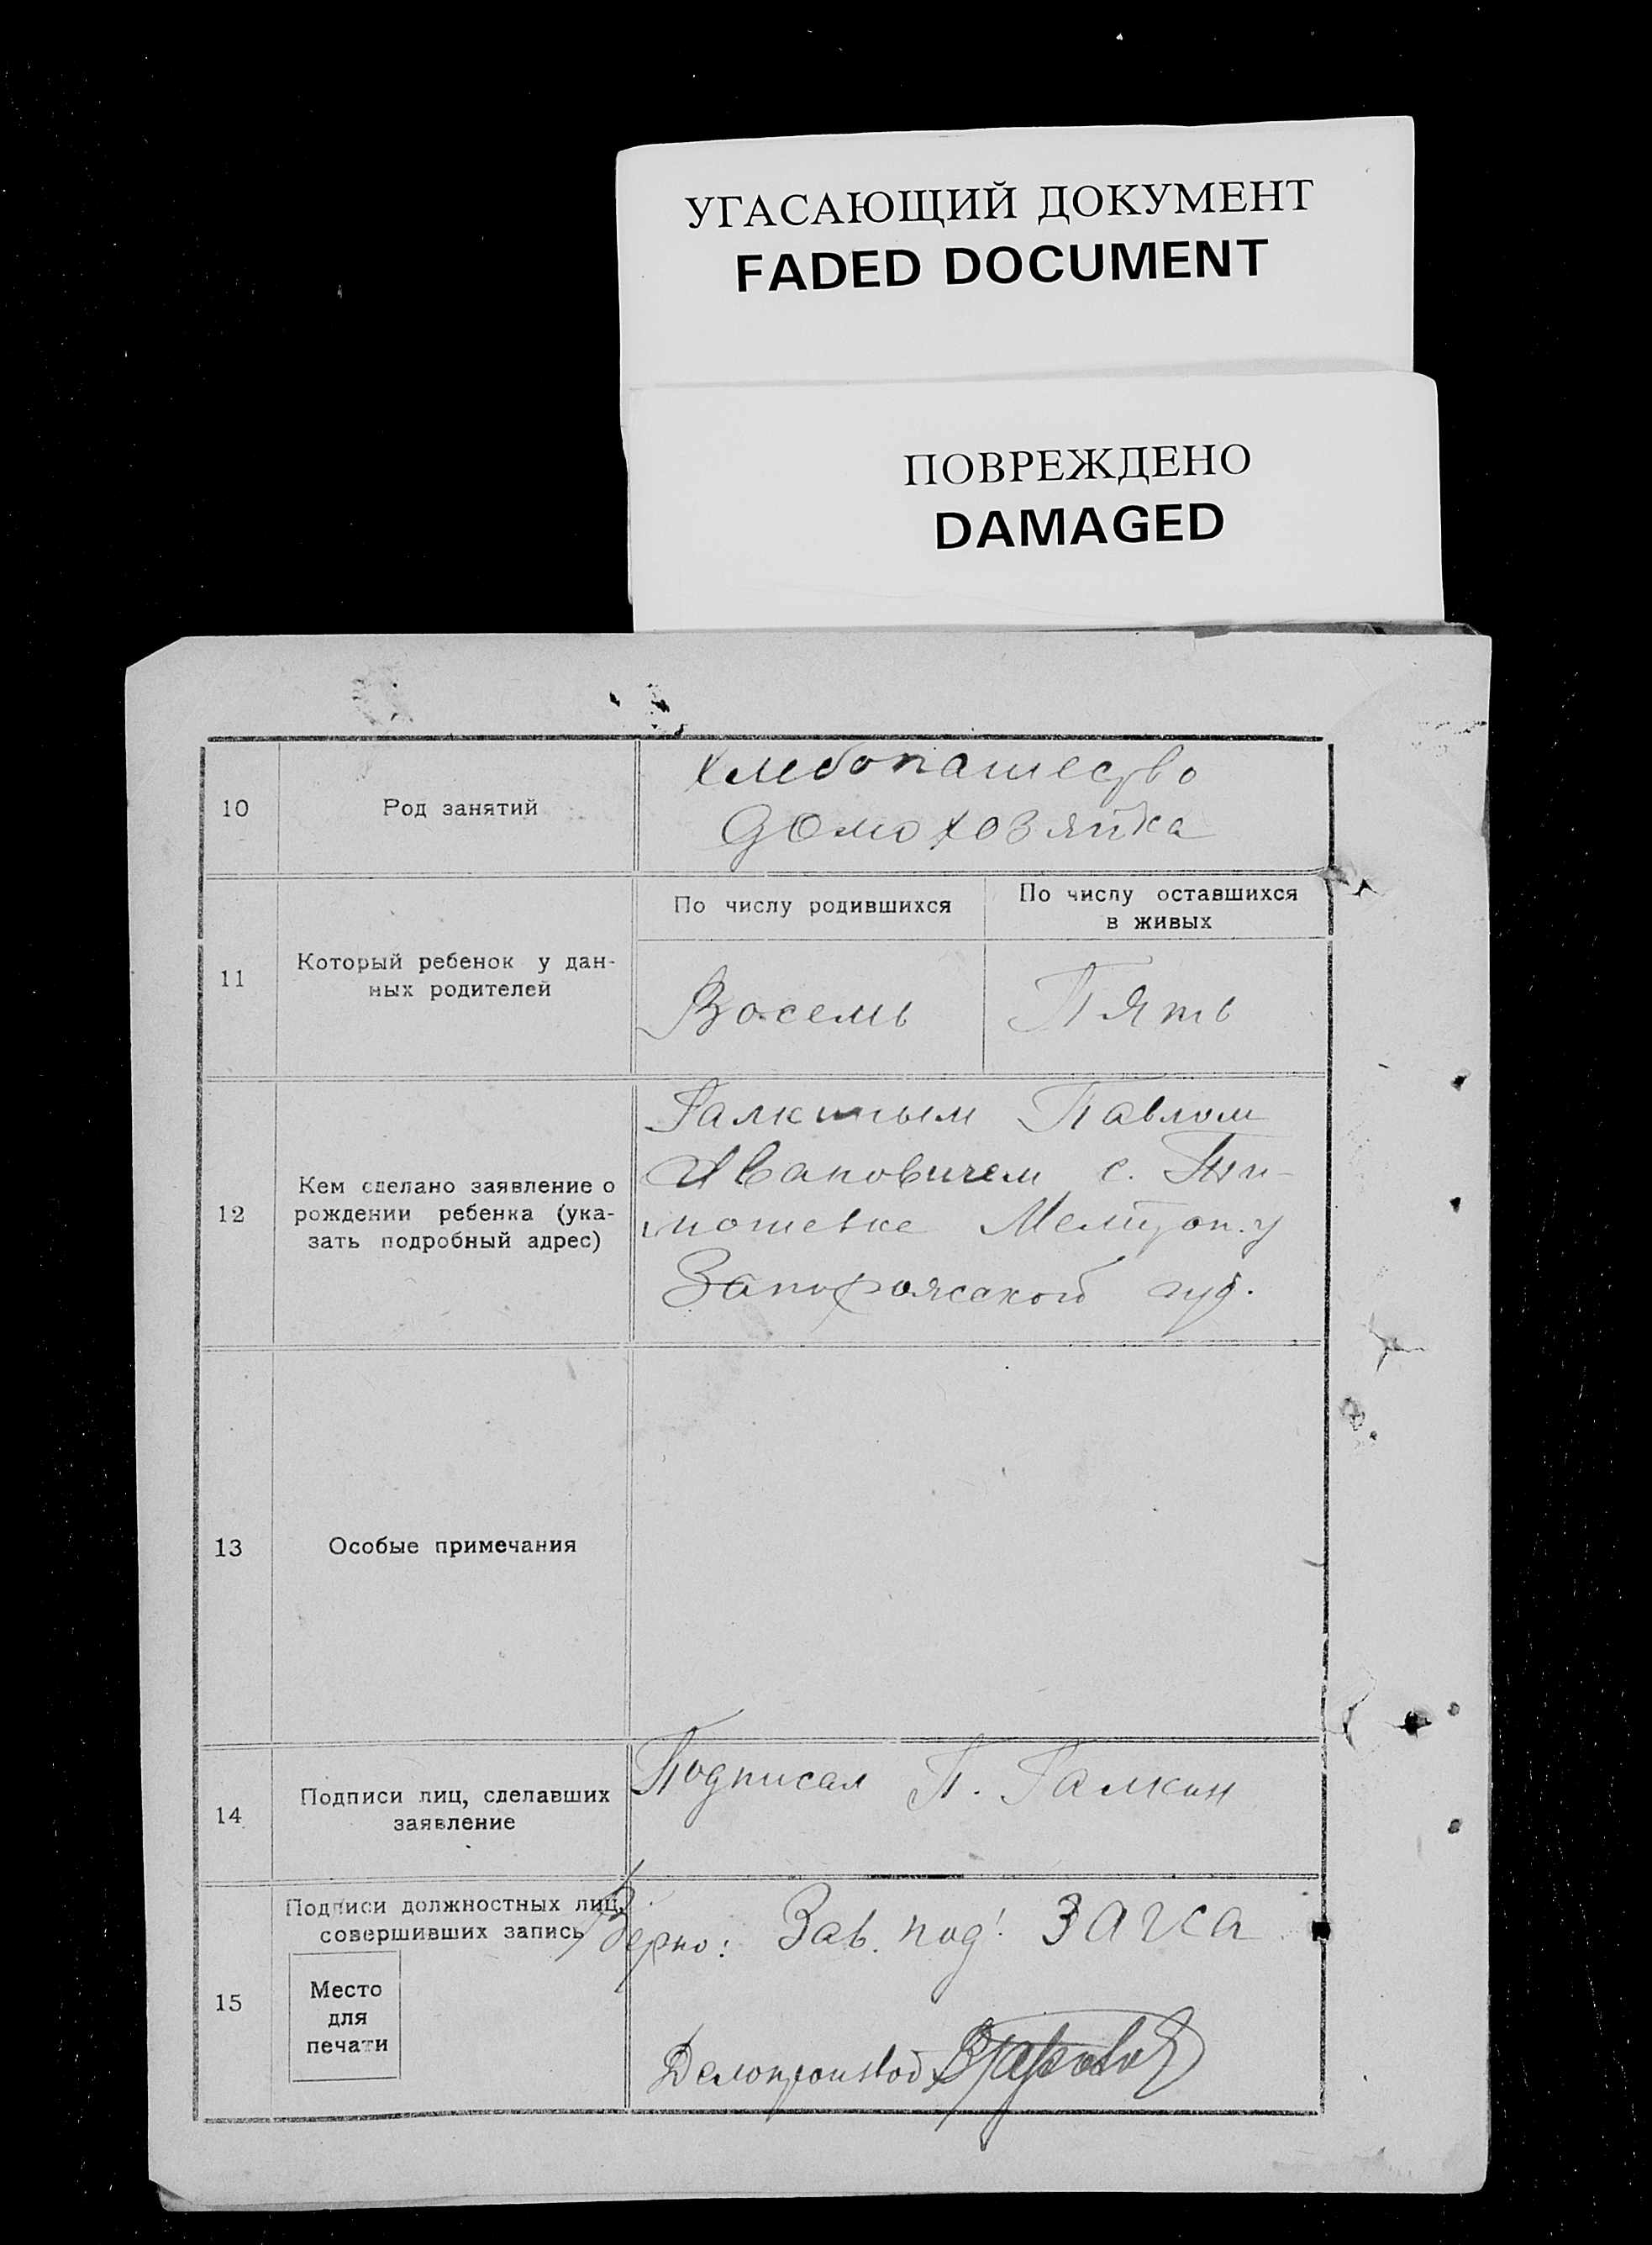 УГАСАЮЩИЙ ДОКУМЕНТ
FADED DOCUMENT
ПОВРЕЖДЕНО
DAMAGED
10
Род занятий
хлебопашество
домохозяйка
11
Который ребенок у дан-
ных родителей
По числу родившихся
Восемь
По числу оставшихся
в живых
Пять
12
Кем сделано заявление о
рождении ребенка (ука-
зать подробный адрес)
Галкиным Павлом
Ивановичем с. Ти-
мошевке Мелитоп. у
Запорожской губ.
13
Особые примечания
14
Подписи лиц, сделавших
заявление
Подписал П. Галкин
15
Подписи должностных лиц,
совершивших запись
Место
для
печати
Верно: Зав. под! ЗАГСа
Делопроизвод